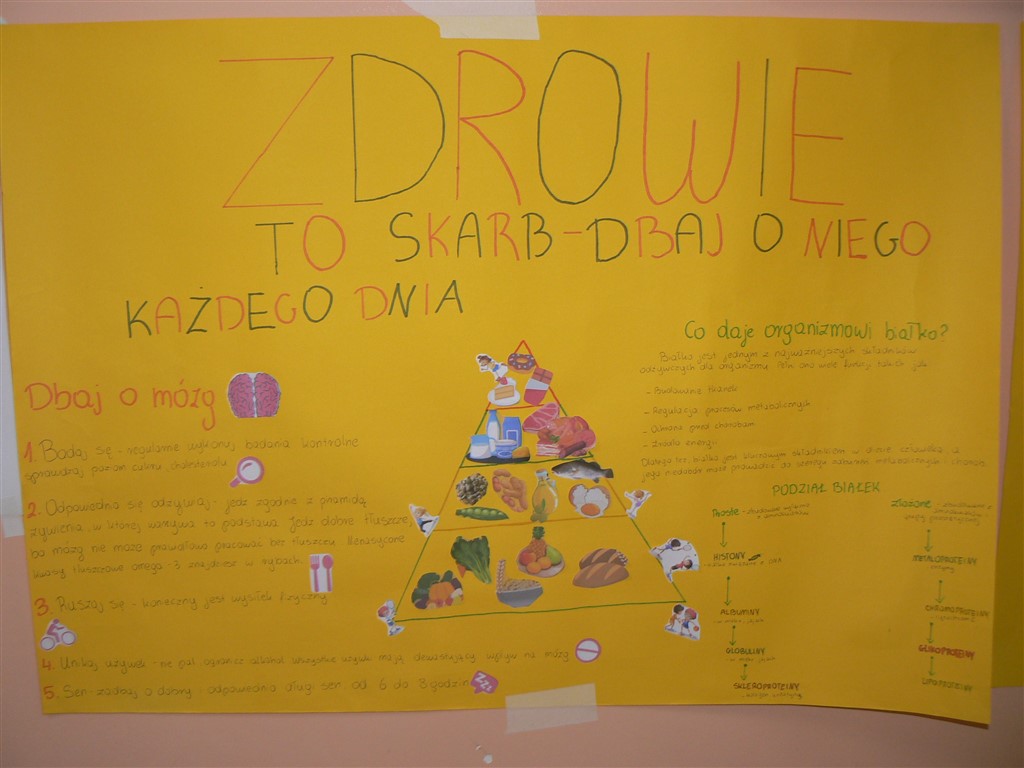 ZDROWIE
TO SKARB-DBAJ O NIEGO
KAŻDEGO DNIA
Dbaj o mózg
1. Badaj się - regularnie wykonuj badania kontrolne
sprawdzaj poziom cukru, cholesterolu
2. Odpowiednio się odżywiaj - jedz zgodnie z piramidą
żywienia, w której warzywa to podstawa. Jedz dobre tłuszcze,
bo mózg nie może prawidłowo pracować bez tłuszczu. Nienasycone
kwasy tłuszczowe omega-3 znajdziesz w rybach.
3. Ruszaj się - konieczny jest wysiłek fizyczny
4. Unikaj używek - nie pal, ogranicz alkohol wszystkie używki mają dewastujący wpływ na mózg
5. Sen - zadbaj o dobry i odpowiednio długi sen: od 6 do 8 godzin
ZZZ
Co daje organizmowi białko?
Białko jest jednym z najważniejszych składników
odżywczych dla organizmu. Pełni ono wiele funkcji takich jak:
- Budowanie tkanek
- Regulacja procesów metabolicznych
- Ochrona przed chorobami
- Źródło energii
Dlatego też, białko jest kluczowym składnikiem w diecie człowieka, a
jego niedobór może prowadzić do
PODZIAŁ BIAŁEK
Proste -
Złożone -
HISTONY
METALOPROTEINY
ALBUMINY
CHROMOPROTEINY
GLOBULINY
GLIKOPROTEINY
SKLEROPROTEINY
LIPOPROTEINY